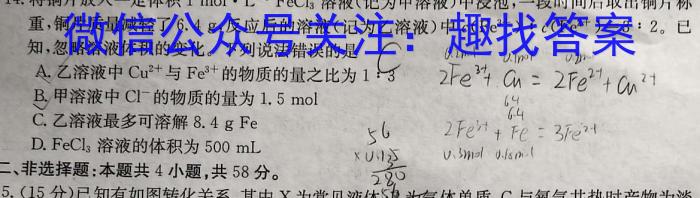 14. 将铜片放入一定体积 1 mol·L FeCl₃ 溶液(记为甲溶液)中浸泡,一段时间后取出铜片称
重,铜 质量减轻了 6.4 g,反应后的溶液(记为乙溶液)中 6∶2。已
微信公众号关注:趣找答案
知,忽略溶液体积的变化, 列说法错误的是
A. 乙溶液中 Cu²⁺与 Fe³⁺的物质的量之比为 1∶3
2Fe³⁺ + Cu = 2Fe²⁺ + Cu²⁺
B. 甲溶液中 Cl⁻的物质的量为 1.5 mol
64
6.4
C. 乙溶液最多可溶解 8.4 g Fe
56
2Fe³⁺ + Fe = 3Fe²⁺
D. FeCl₃ 溶液的体积为 500 mL
×0.15
0.3mol 0.15mol
280
二、非选择题:本题共 4 小题,共 58 分。
5. (15 分)已知有如图转化关系,其中 X 为常见液体 为气体单质,C 与氧气共热时产物为淡